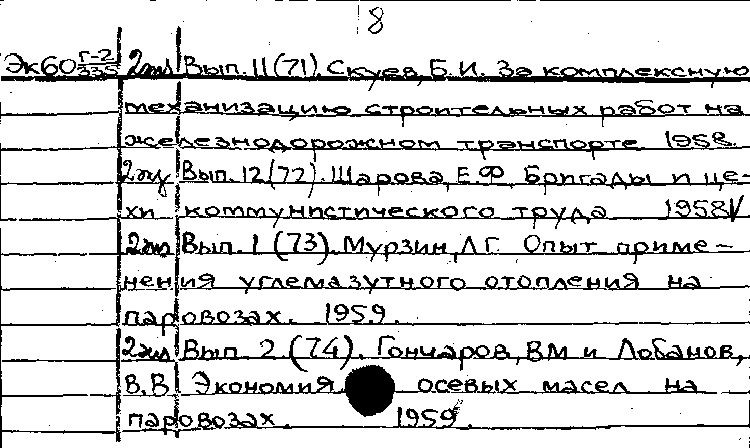 8
Эк60 Г-2/335 2эк Вып. 11(71). Скуев, Б.И. За комплексную
механизацию строительных работ на
железнодорожном транспорте 1958.
Вып. 12(72). Шарова, Е.Ф. Бригады и це-
хи коммунистического труда 1958
Вып. 1 (73). Мурзин, Л.Г. Опыт приме-
нения углемазутного отопления на
паровозах. 1959.
Вып. 2 (74). Гончаров, В.М и Лобанов,
В.В. Экономия осевых масел на
паровозах. 1959.